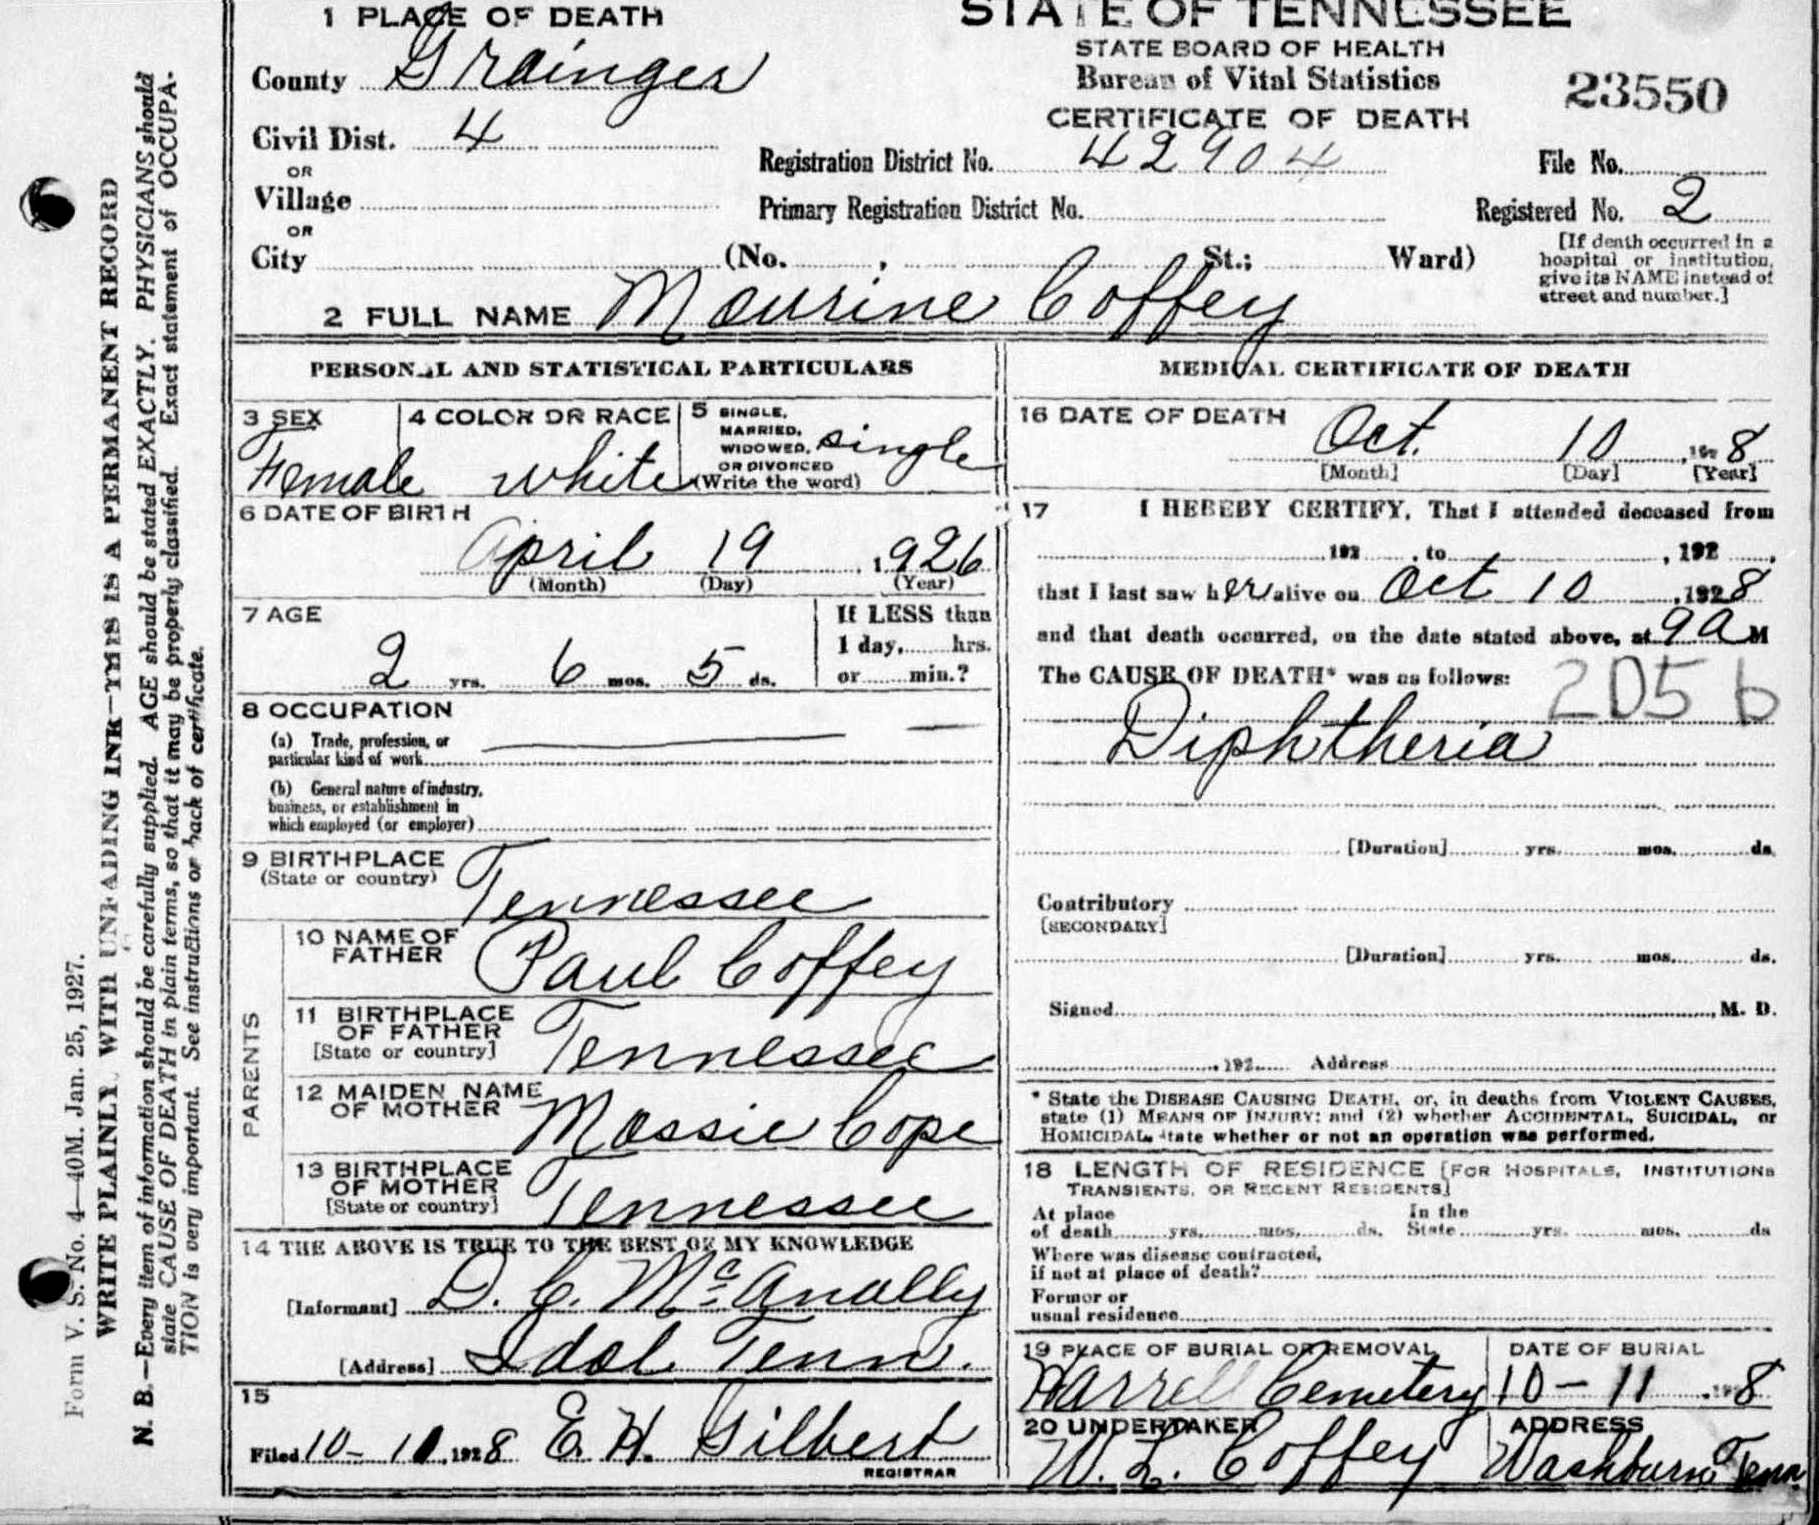 1 PLACE OF DEATH
STATE OF TENNESSEE
STATE BOARD OF HEALTH
Bureau of Vital Statistics
CERTIFICATE OF DEATH
23550
County Grainger
Civil Dist. 4
OR
Village
OR
City (No. , St.; Ward)
Registration District No. 42904
File No.
Primary Registration District No.
Registered No. 2
[If death occurred in a
hospital or institution,
give its NAME instead of
street and number.]
2 FULL NAME Maurine Coffey
PERSONAL AND STATISTICAL PARTICULARS
3 SEX
Female
4 COLOR OR RACE
white
5 SINGLE,
MARRIED,
WIDOWED,
OR DIVORCED
(Write the word)
single
6 DATE OF BIRTH
April 19, 1926
(Month) (Day) (Year)
7 AGE
2 yrs. 6 mos. 5 ds.
If LESS than
1 day, hrs.
or min.?
8 OCCUPATION
(a) Trade, profession, or
particular kind of work
(b) General nature of industry,
business, or establishment in
which employed (or employer)
9 BIRTHPLACE
(State or country)
Tennessee
PARENTS
10 NAME OF
FATHER
Paul Coffey
11 BIRTHPLACE
OF FATHER
[State or country]
Tennessee
12 MAIDEN NAME
OF MOTHER
Massie Cope
13 BIRTHPLACE
OF MOTHER
[State or country]
Tennessee
14 THE ABOVE IS TRUE TO THE BEST OF MY KNOWLEDGE
[Informant] D. C. McAnally
[Address] Idol Tenn.
15
Filed 10-10, 1928 E. H. Gilbert
REGISTRAR
MEDICAL CERTIFICATE OF DEATH
16 DATE OF DEATH
Oct. 10, 1928
[Month] [Day] [Year]
17 I HEREBY CERTIFY, That I attended deceased from
192 , to , 192 ,
that I last saw her alive on Oct 10, 1928
and that death occurred, on the date stated above, at 9 a M
The CAUSE OF DEATH* was as follows:
205 b
Diphtheria
[Duration] yrs. mos. ds.
Contributory
[SECONDARY]
[Duration] yrs. mos. ds.
Signed , M. D.
, 192 Address
* State the DISEASE CAUSING DEATH, or, in deaths from VIOLENT CAUSES,
state (1) MEANS OF INJURY; and (2) whether ACCIDENTAL, SUICIDAL, or
HOMICIDAL, state whether or not an operation was performed.
18 LENGTH OF RESIDENCE [FOR HOSPITALS, INSTITUTIONS
TRANSIENTS, OR RECENT RESIDENTS]
At place
of death yrs. mos. ds.
In the
State yrs. mos. ds
Where was disease contracted,
if not at place of death?
Former or
usual residence
19 PLACE OF BURIAL OR REMOVAL
Harrell Cemetery
DATE OF BURIAL
10-11, 1928
20 UNDERTAKER
W. L. Coffey
ADDRESS
Washburn Tenn.
Form V. S. No. 4—40M. Jan. 25, 1927.
WRITE PLAINLY, WITH UNFADING INK—THIS IS A PERMANENT RECORD
N. B.—Every item of information should be carefully supplied. AGE should be stated EXACTLY. PHYSICIANS should
state CAUSE OF DEATH in plain terms, so that it may be properly classified. Exact statement of OCCUPA-
TION is very important. See instructions on back of certificate.